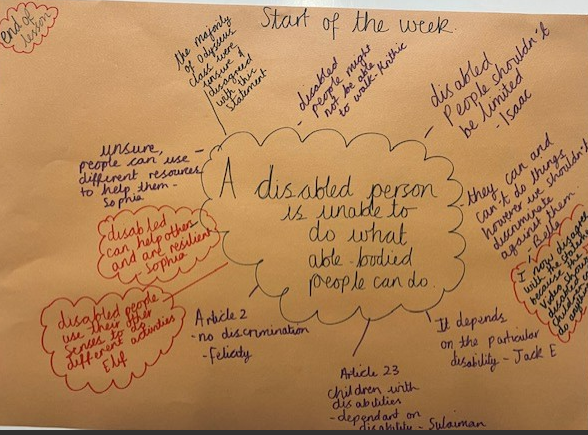 end of
lesson
Start of the week.
the majority
of Odysseus
class were
unsure &
disagreed
with this
statement
disabled
people might
not be able
to walk - Krithic
disabled
People shouldn't
be limited
- Isaac
unsure,
people can use
different resources
to help them -
Sophia
A disabled person
is unable to
do what
able-bodied
people can do.
they can and
can't do things
however we shouldn't
discriminate
against them
disabled
can help others
and are resilient
Sophia
disabled people
use their other
senses to do
different activities
Elif
Article 2
- no discrimination
- Felicity
Article 23
children with
disabilities
- dependant on
disability - Sulaiman
It depends
on the particular
disability - Jack E
I now disagree
with the
because